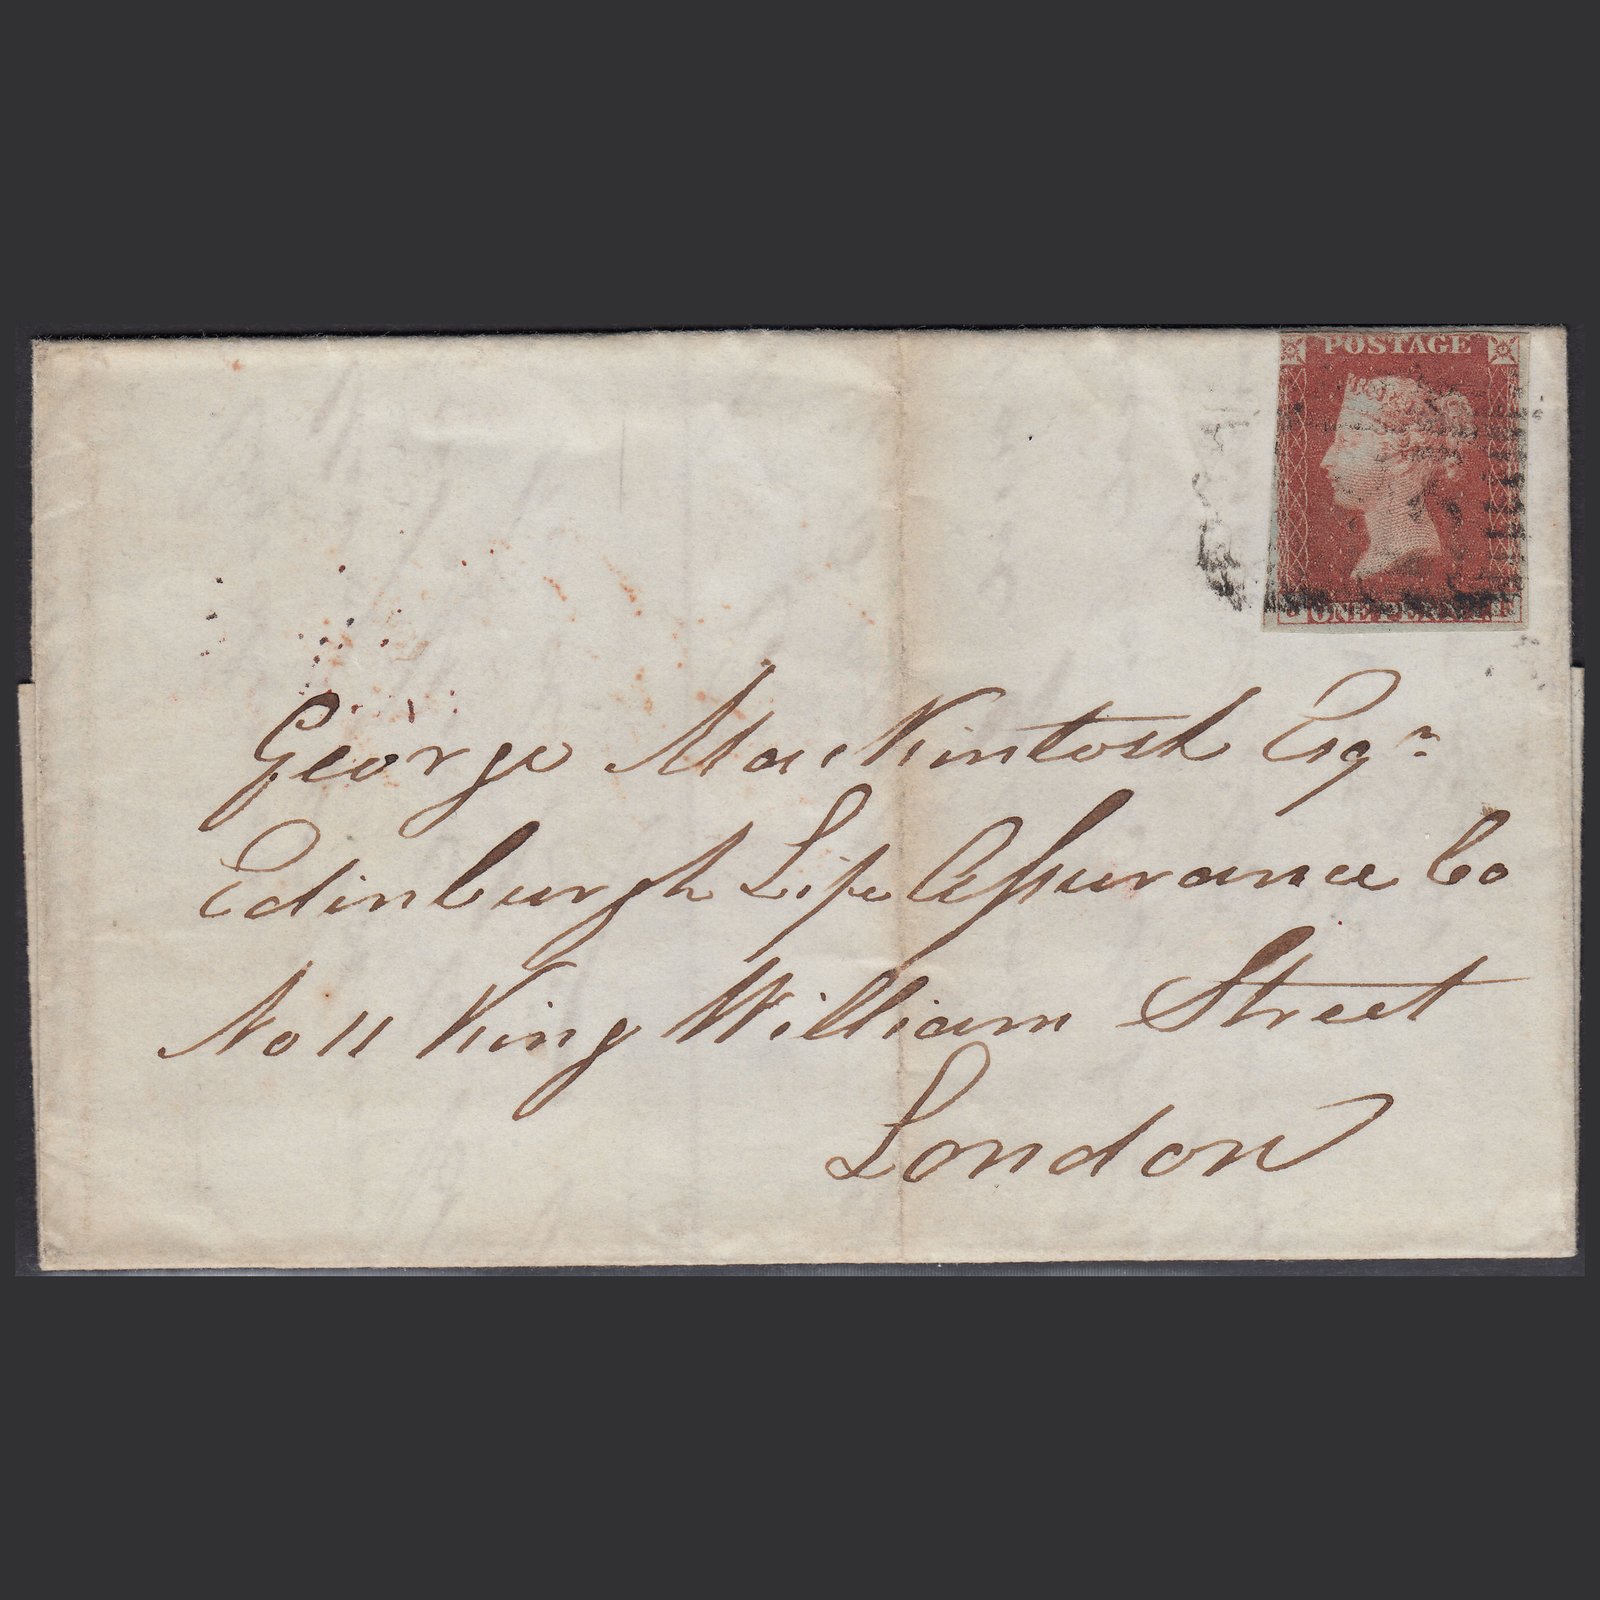 POSTAGE
ONE PENNY.
George MacKintosh Esqr
Edinburgh Life Assurance Co
No 11 King William Street
London